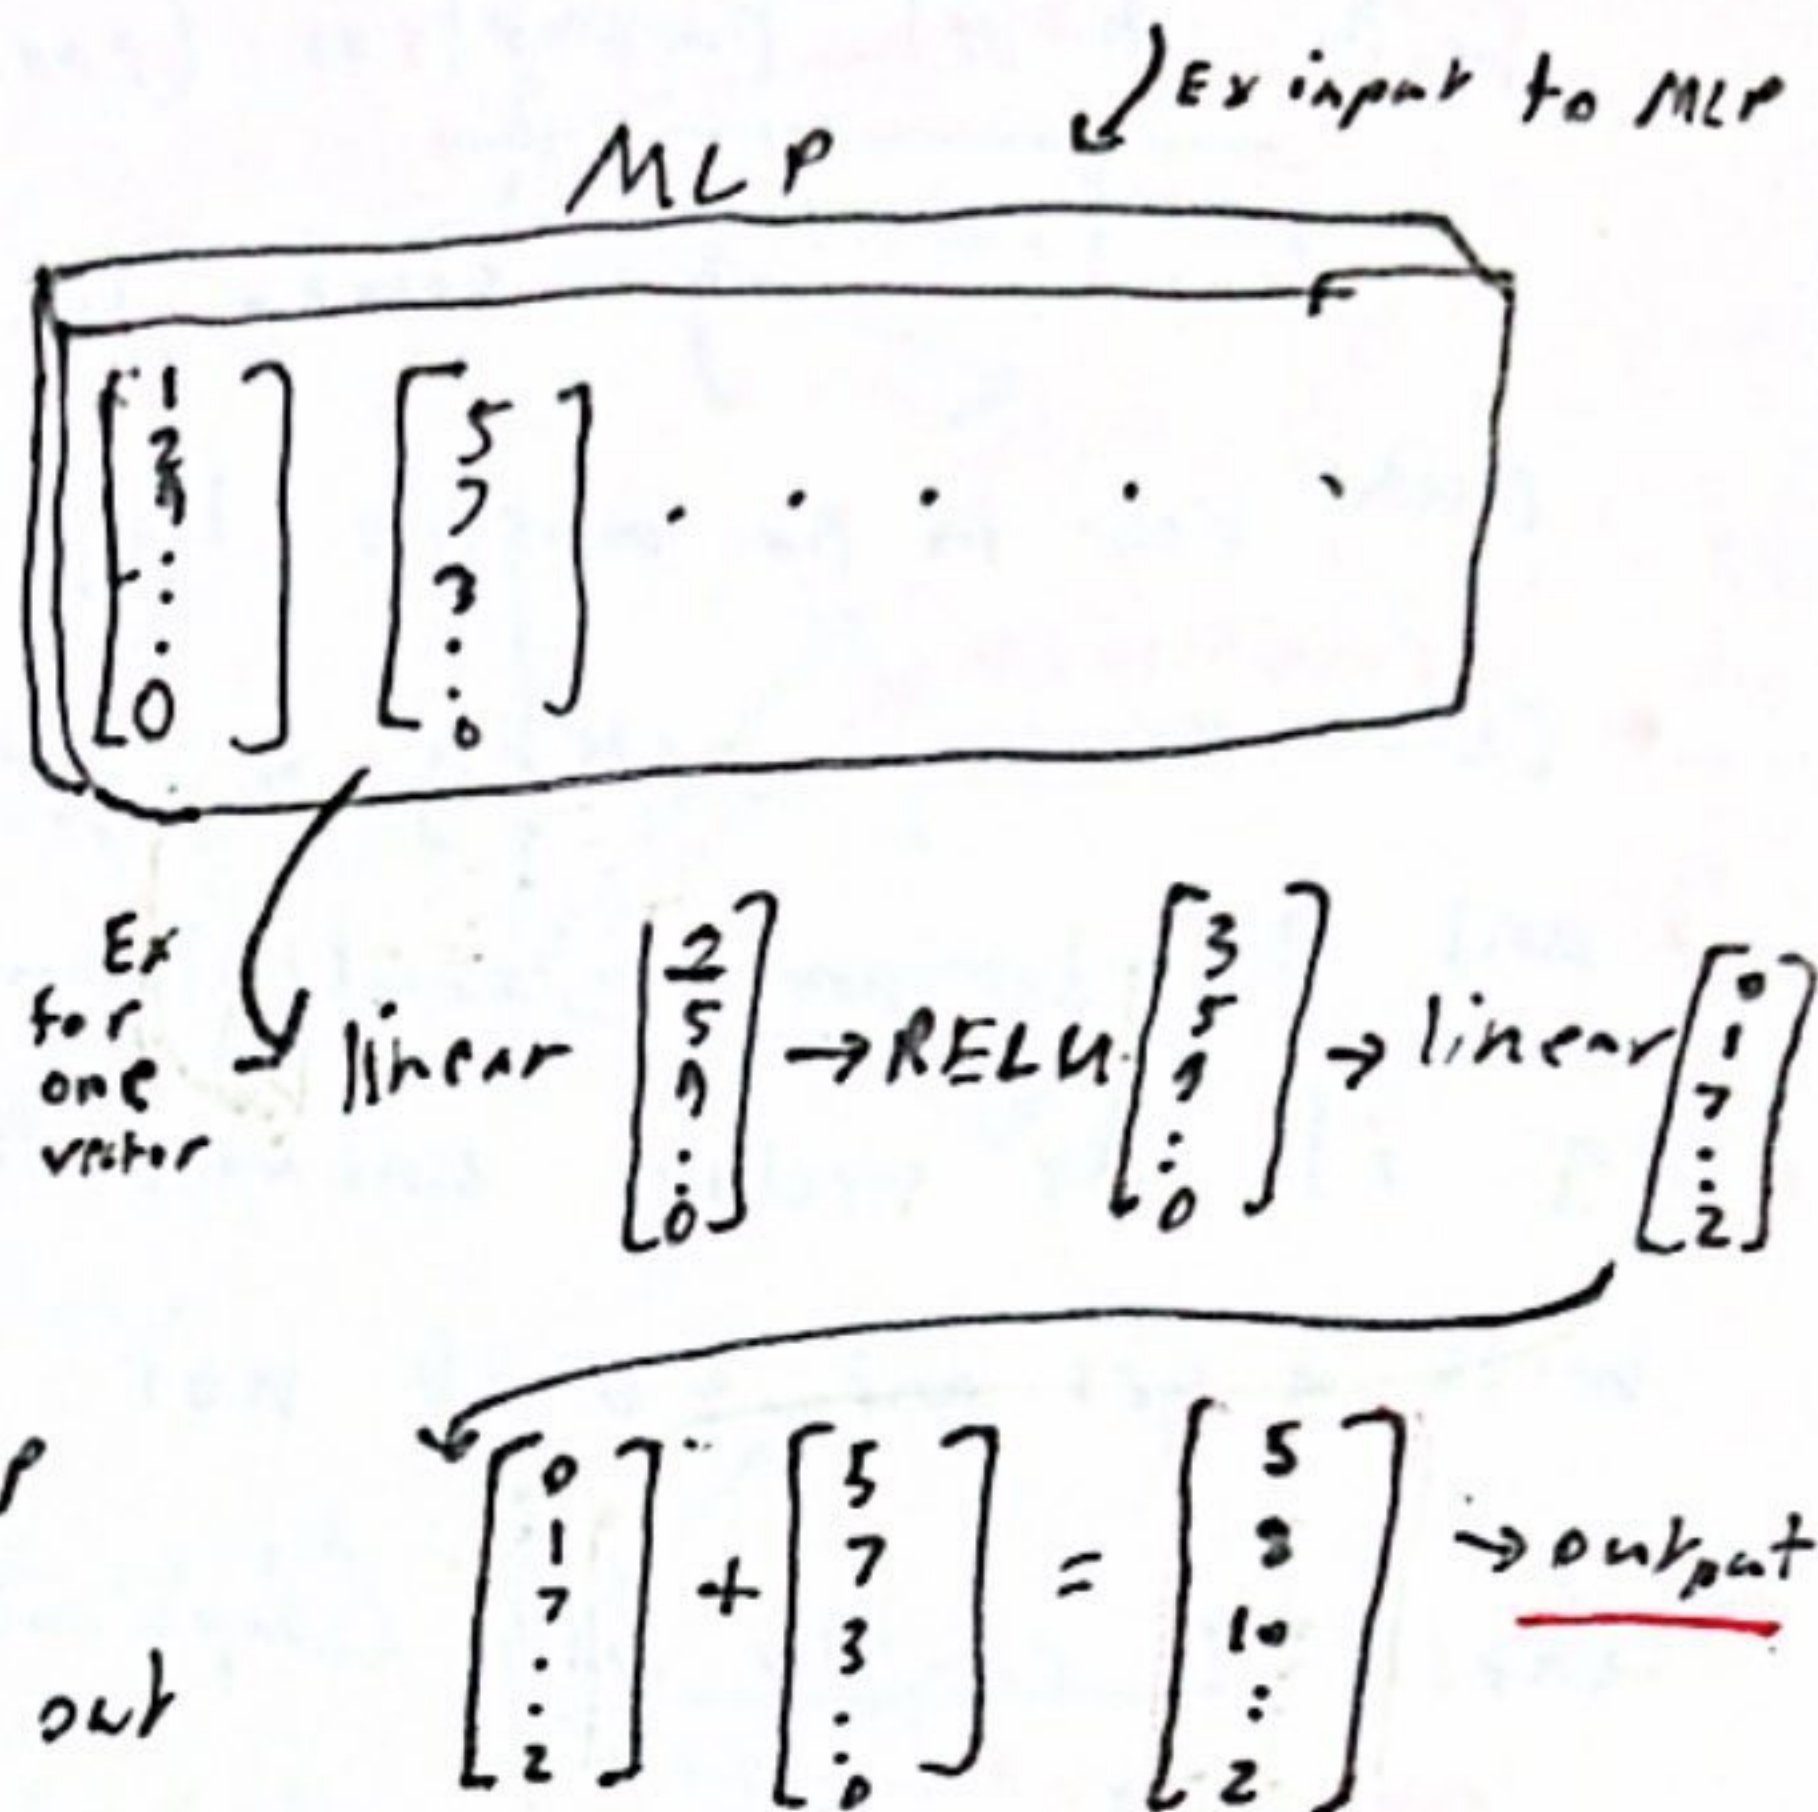 Ex input to MLP
MLP
[1 2 9 : . 0] [5 7 3 . . 0] . . . . .
Ex for one vector
linear [2 5 9 : 0] → RELU [3 5 9 : 0] → linear [0 1 7 : 2]
[0 1 7 . . 2] + [5 7 3 : 0] = [5 8 10 : 2] → output
P
out